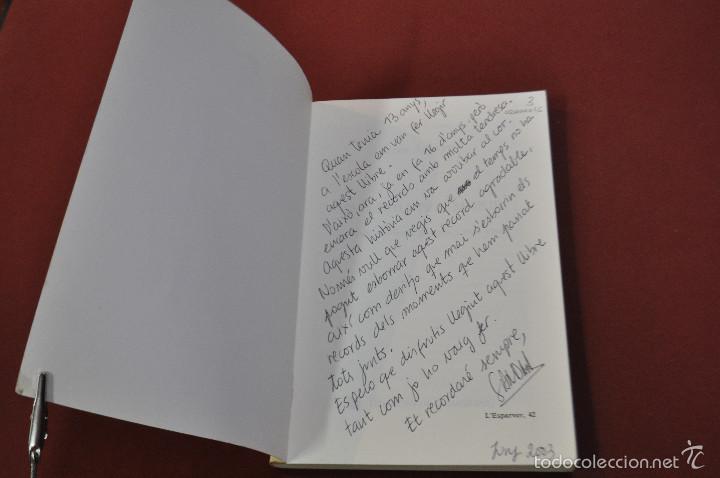 3
Quan tenia 13 anys,
a l'escola em van fer llegir
aquest llibre.
D'això, ara, ja en fa 16 d'anys, però
encara el recordo amb molta tendresa.
Aquesta història em va arribar al cor.
Només vull que vegis que el temps no ha
pogut esborrar aquest record agradable,
així com desitjo que mai s'esborrin els
records dels moments que hem passat
tots junts.
Espero que disfrutis llegint aquest llibre
tant com jo ho vaig fer.
Et recordaré sempre,
L'Esparver, 42
Juny 2003
todocoleccion.net